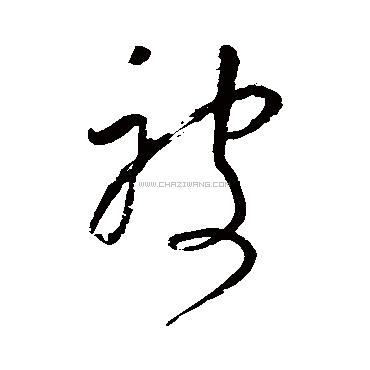 被
WWW.CHAZIWANG.COM